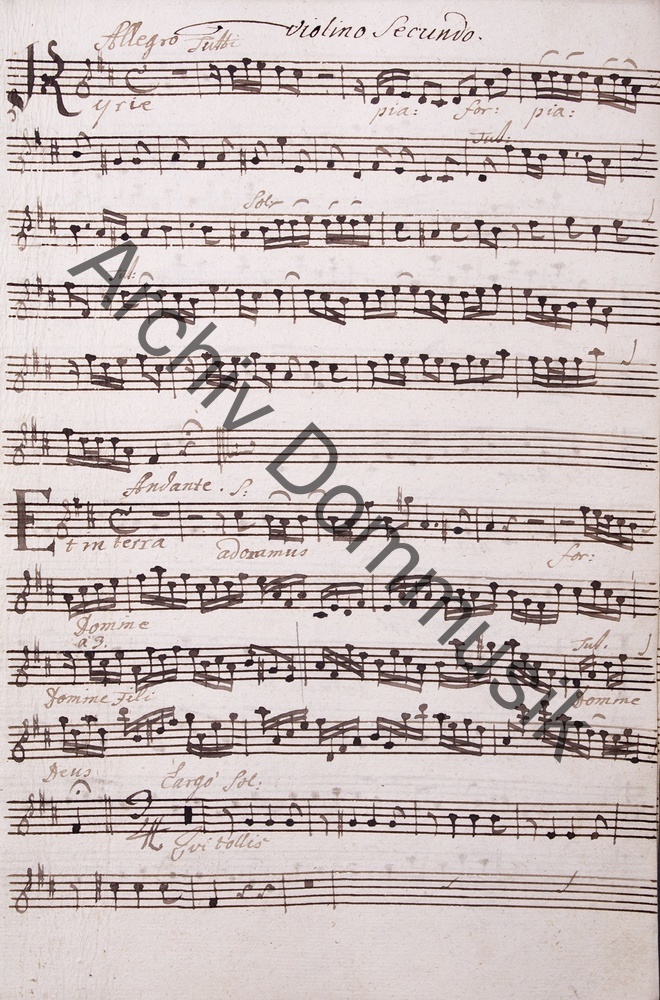 Violino Secundo.
Allegro Tutti
Kyrie
pia: for: pia:
Tut:
Sol:
Tut:
Andante. S:
Et in terra adoramus for:
Domine
a3. Tut.
Domine Fili Domine
Deus Largo Sol:
Qui tollis
Archiv Dommusik